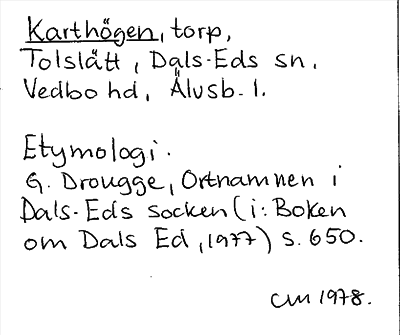 Karthögen, torp,
Tolslätt, Dals-Eds sn.
Vedbo hd, Älvsb. l.
Etymologi.
G. Drougge, Ortnamnen i
Dals-Eds socken (i: Boken
om Dals Ed, 1977) s. 650.
CM 1978.